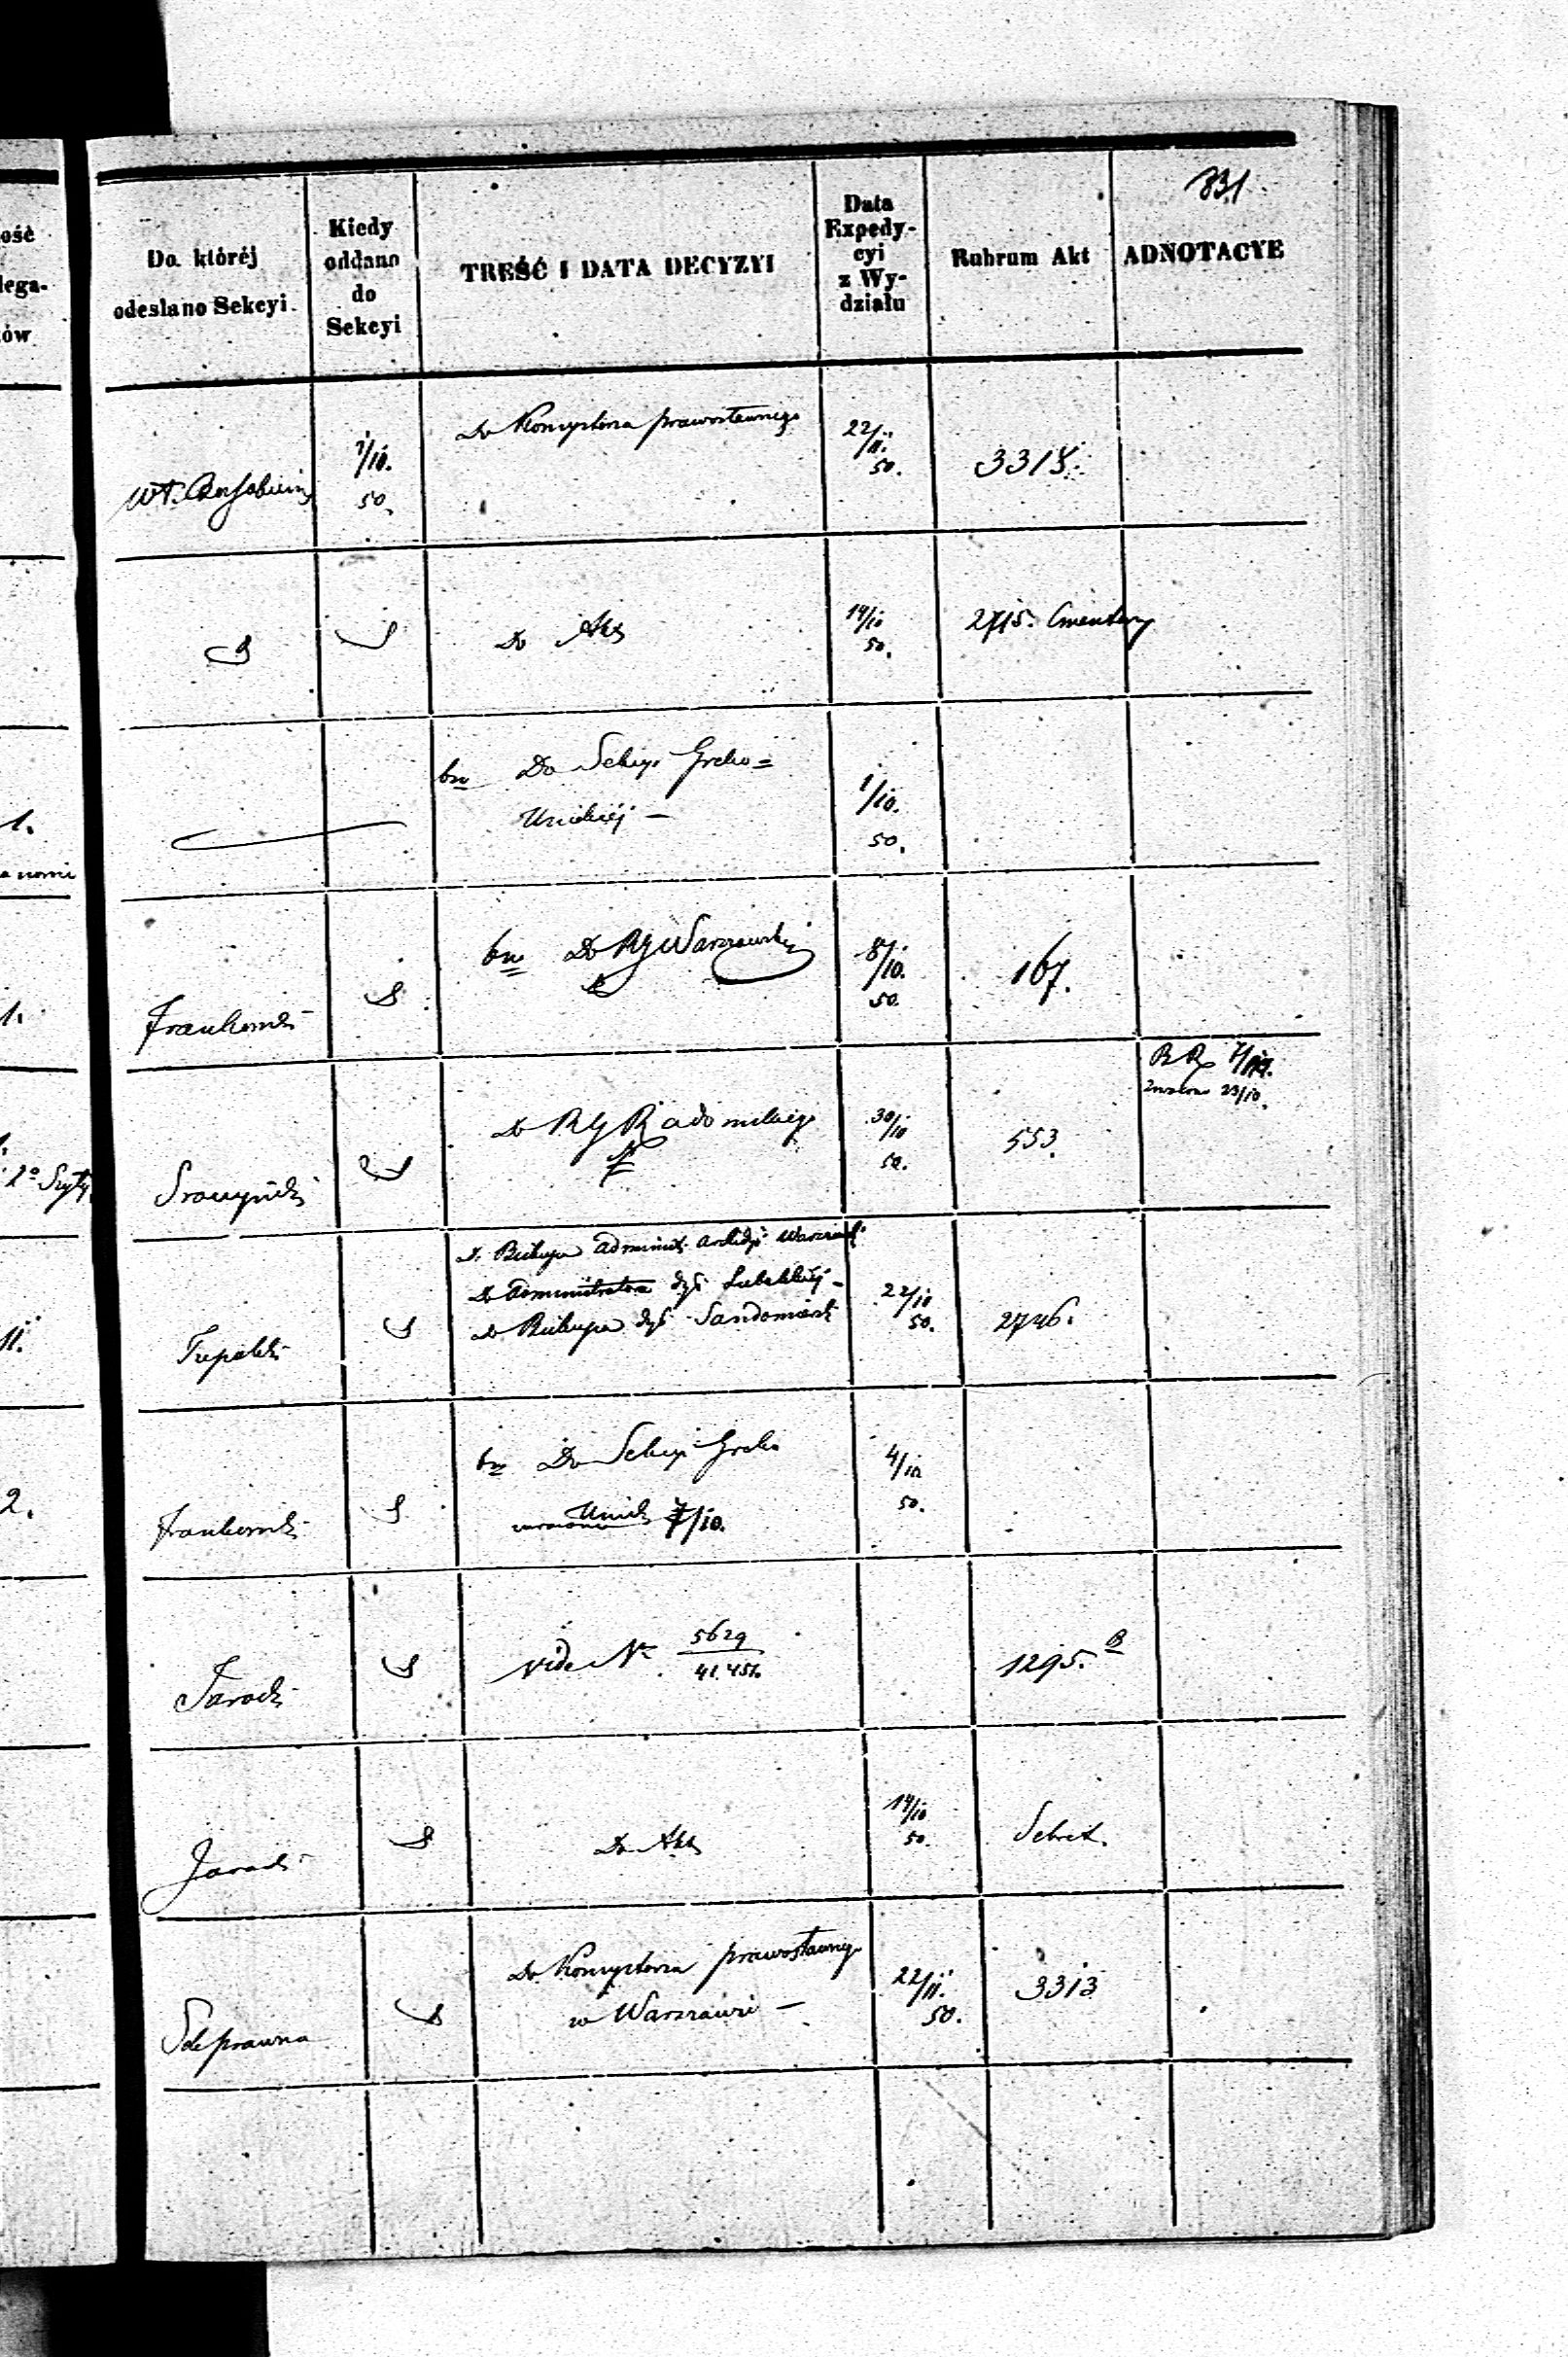 831
Do. któréj
odesłano Sekcyi.
Kiedy
oddano
do
Sekcyi
TREŚĆ I DATA DECYZYI
Data
Expedy-
cyi
z Wy-
działu
Rubrum Akt
ADNOTACYE
ość
lega-
ów
Wł.
1/10.
50.
Do Konsystorza prawosławnego
22/11.
50.
3318.
Do Akt
14/10
50.
2715. Cmentarz
1.
bm Do Sekcyi Greko=
Unickiéj —
1/10.
50.
1.
Frankowski
bm Do RG Warszawski
8/10.
50.
167.
Do RG Radomskiego
30/10
50.
553.
BR 7/10.
23/10.
11.
Trepalski
Do Biskupa Administ. Archidyi Warszawsk
Do Administratora dyi Lubelskiéj —
Do Biskupa dyi Sandomiersk
22/10
50.
2746.
2.
Frankowski
bm Do Sekcyi Greko
Unick
7/10.
4/10
50.
Jarocki
vide Nr 5629
41.451.
1295. B
Jarocki
Do Akt
14/10
50.
Sekret.
Sek prawna
Do Konsystorza prawosławneg
w Warszawie —
22/11.
50.
3313